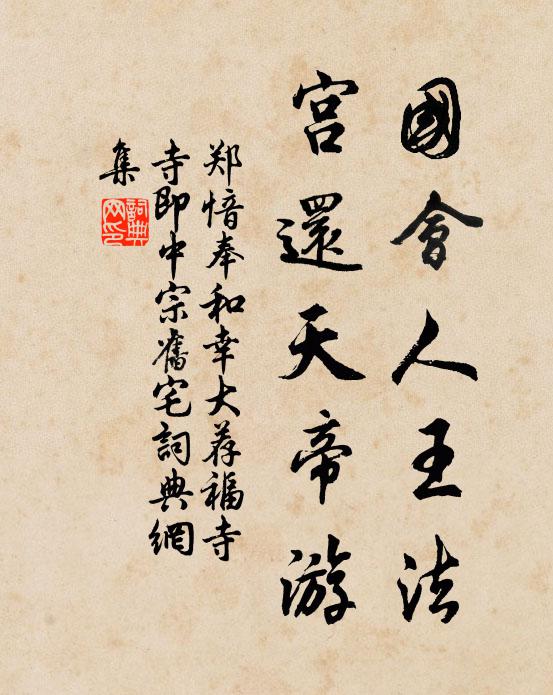 國會人王法
宫還天帝游
郑愔奉和幸大荐福寺
寺即中宗舊宅詞典網
集
詞典網印